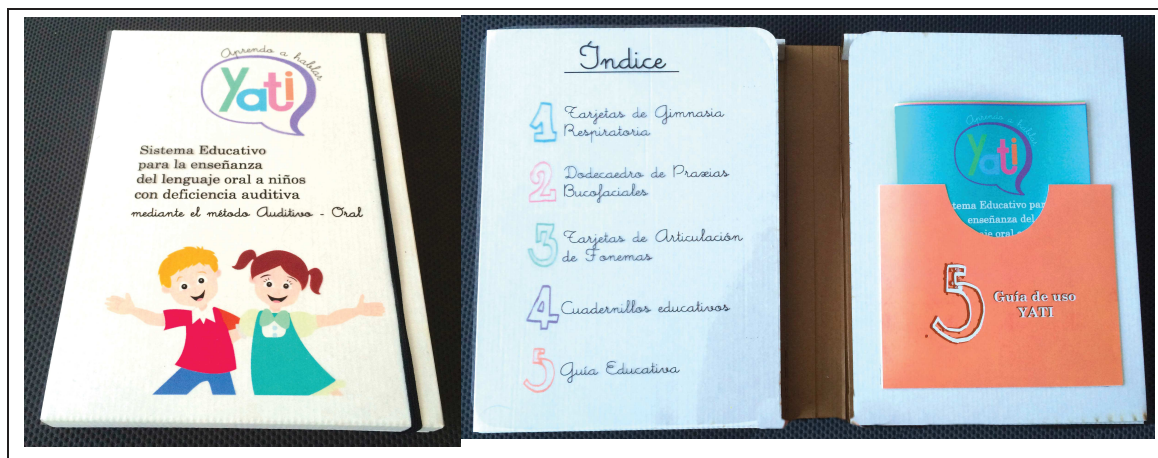 Aprendo a hablar
Yati
Sistema Educativo
para la enseñanza
del lenguaje oral a niños
con deficiencia auditiva
mediante el método Auditivo - Oral
Índice
1 Tarjetas de Gimnasia
Respiratoria
2 Dodecaedro de Praxias
Bucofaciales
3 Tarjetas de Articulación
de Fonemas
4 Cuadernillos educativos
5 Guía Educativa
Aprendo a hablar
Yati
tema Educativo par
enseñanza del
je oral
5 Guía de uso
YATI